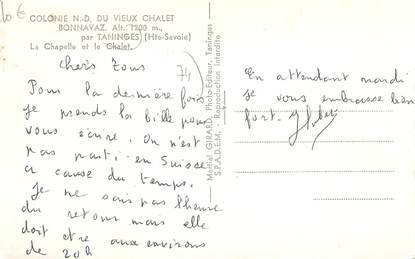 10 €
COLONIE N.-D. DU VIEUX CHALET
BONNAVAZ. Alt. 1200 m.,
par TANINGES (Hte-Savoie)
La Chapelle et le Chalet.
74
chers tous
Pour la dernière fois
je prends la bille pour
vous écrire. On n'est
pas parti en Suisse
a cause du temps.
Je ne sais pas l'heure
du retour mais elle
doit etre aux environs
de 20h
Martial GIRARD, Photo-Editeur, Taninges
S.P.A.D.E.M. - Reproduction interdite
En attendant mardi
je vous embrasse bien
fort.